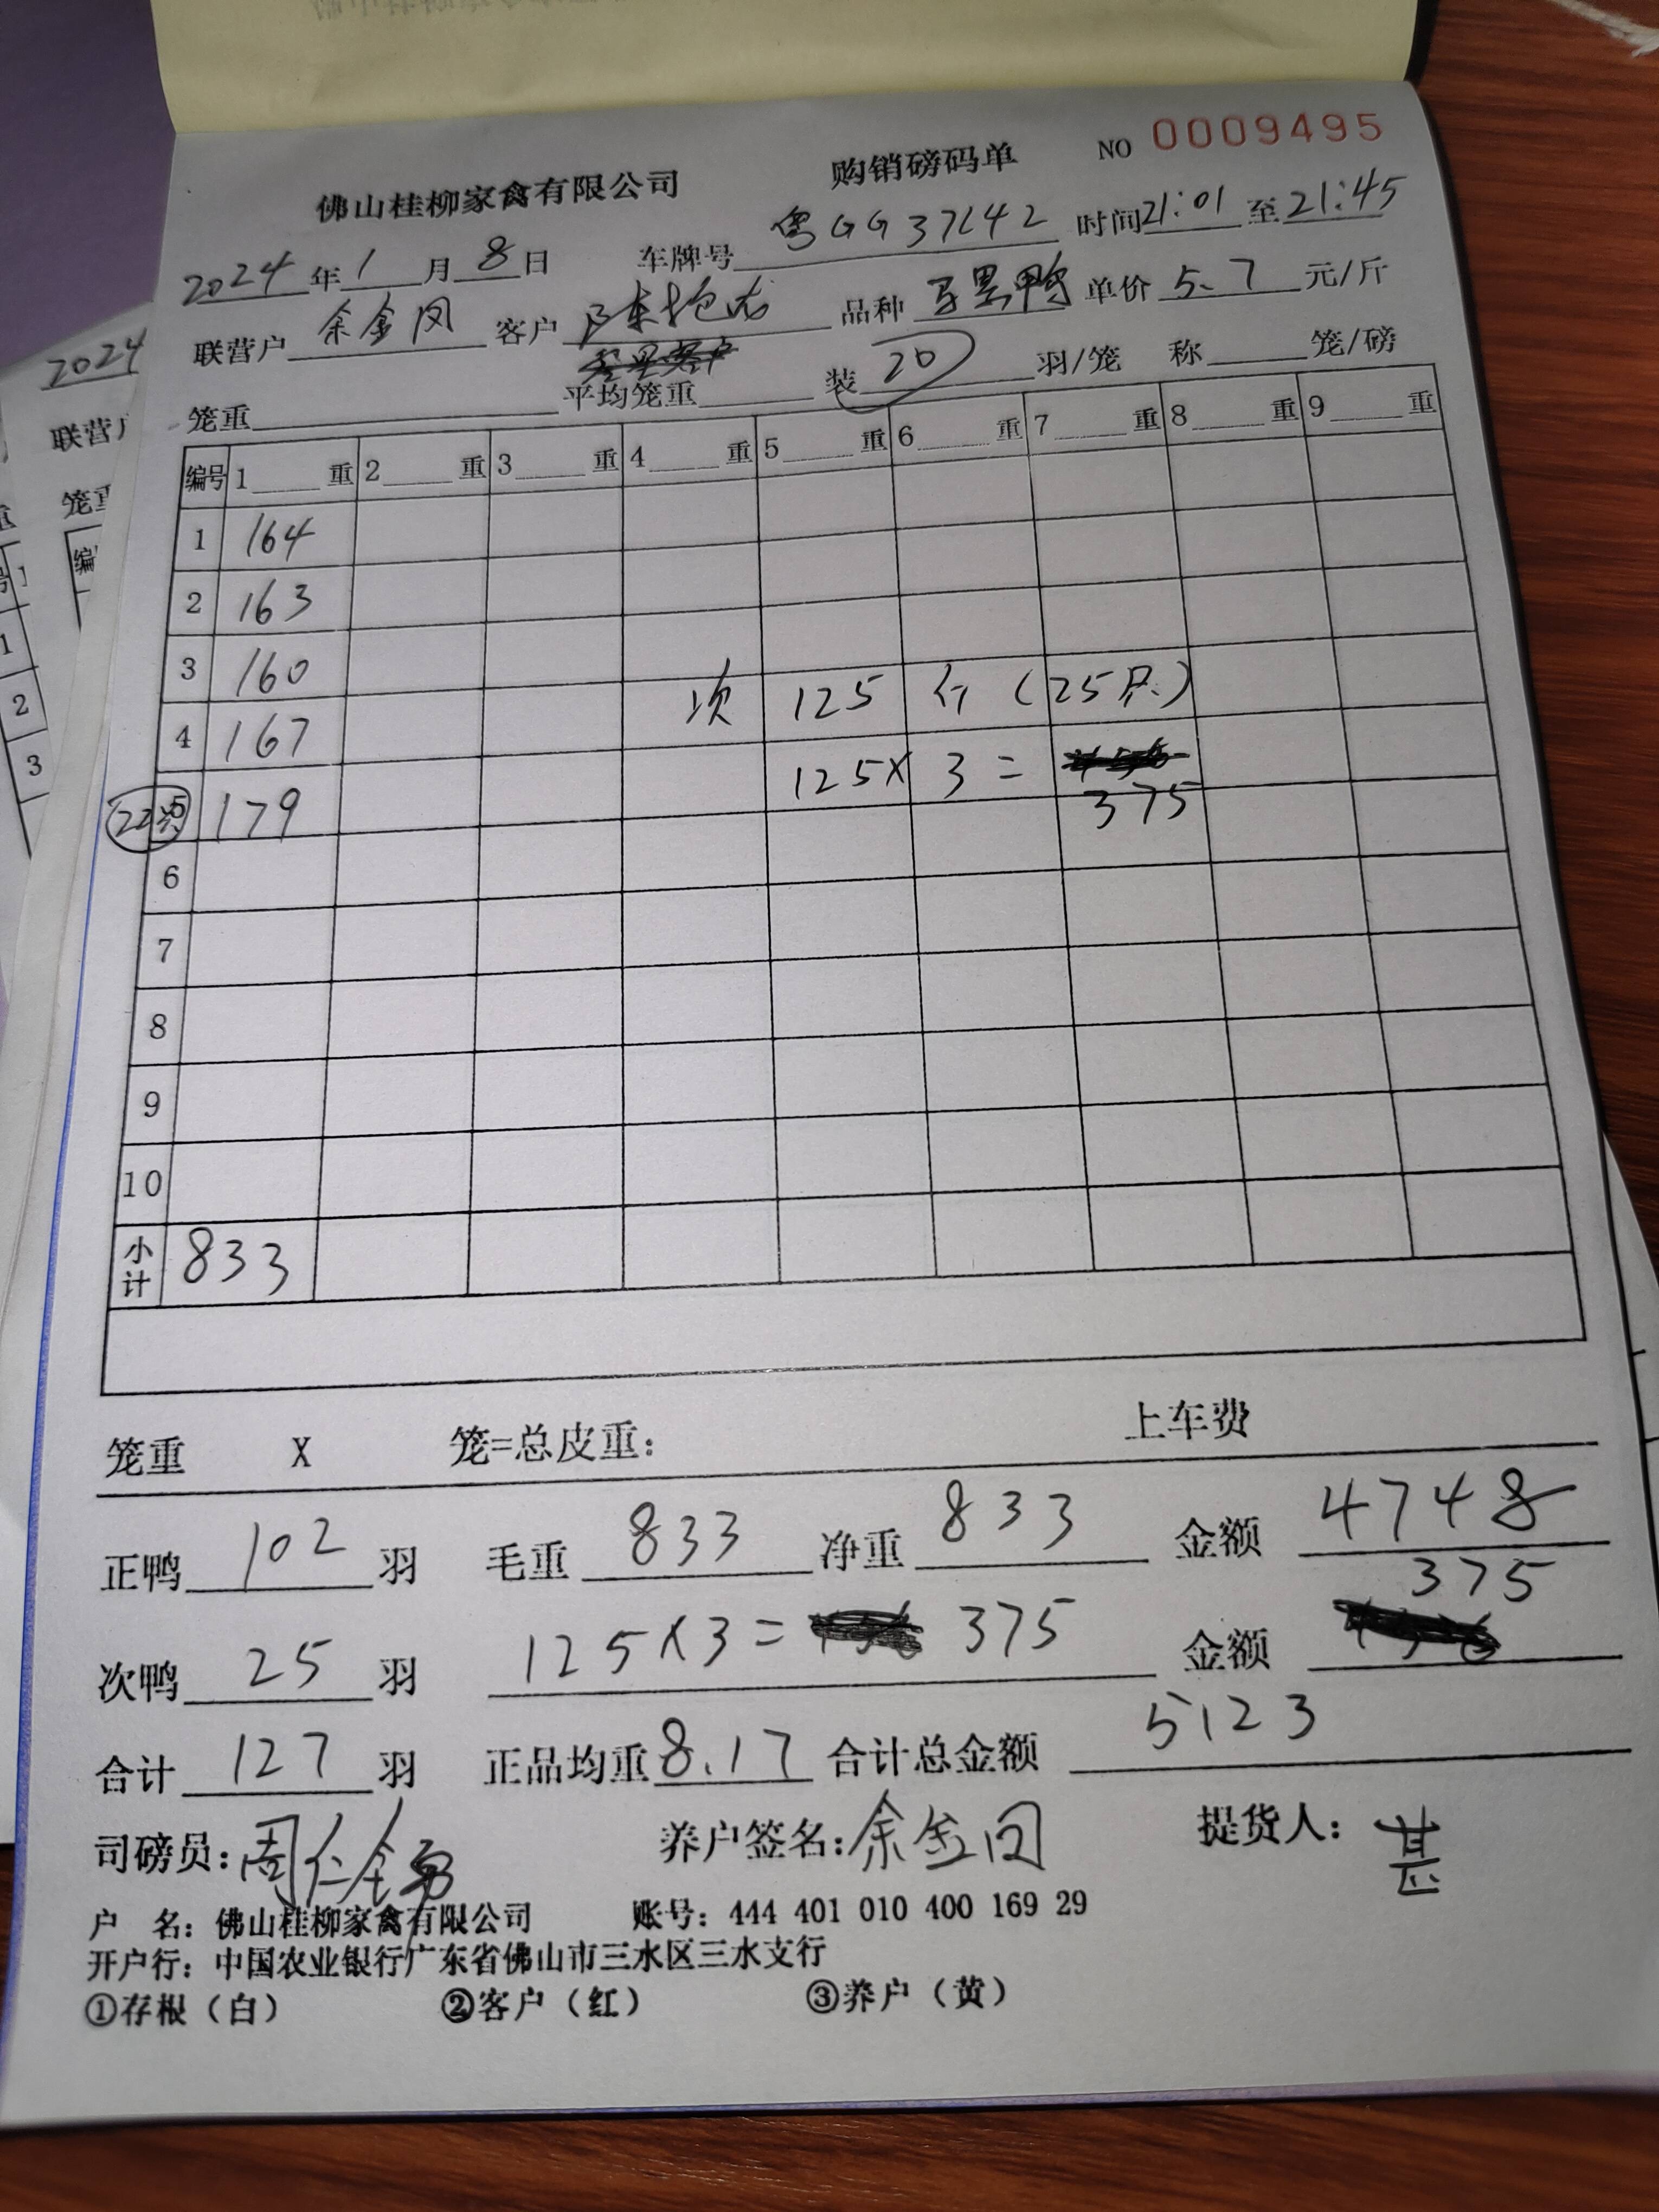 佛山桂柳家禽有限公司 购销磅码单 NO 0009495
2024年1月8日 车牌号 粤GG37L42 时间21:01至21:45
联营户 余金凤 客户 品种 黑鸭 单价 5.7 元/斤
笼重 平均笼重 装 20 羽/笼 称 笼/磅
编号 1 重 2 重 3 重 4 重 5 重 6 重 7 重 8 重 9 重
1 164
2 163
3 160
次 125 斤 (25只)
4 167
125X 3 =
375
22只 5 179
6
7
8
9
10
小计 833
笼重 X 笼=总皮重: 上车费
正鸭 102 羽 毛重 833 净重 833 金额 4748
375
次鸭 25 羽 125X3= 375 金额
合计 127 羽 正品均重 8.17 合计总金额 5123
司磅员: 养户签名: 余金凤 提货人: 甚
户 名: 佛山桂柳家禽有限公司 账号: 444 401 010 400 169 29
开户行: 中国农业银行广东省佛山市三水区三水支行
①存根（白） ②客户（红） ③养户（黄）
2024
联营户
笼重
编
1
2
3